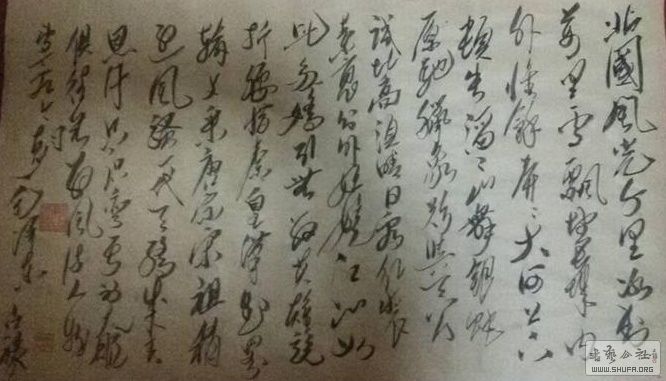 北國風光千里冰封
萬里雪飄望長城內
外惟餘莽々大河上下
頓失滔々山舞銀蛇
原馳蠟象欲與天公
試比高須晴日看紅裝
素裹分外妖嬈江山如
此多嬌引無數英雄競
折腰惜秦皇漢武略
輸文采唐宗宋祖稍
遜風騷一代天驕成吉
思汗只識彎弓射大雕
俱往矣數風流人物
還看今朝 毛澤東
书艺公社
WWW.SHUFA.ORG